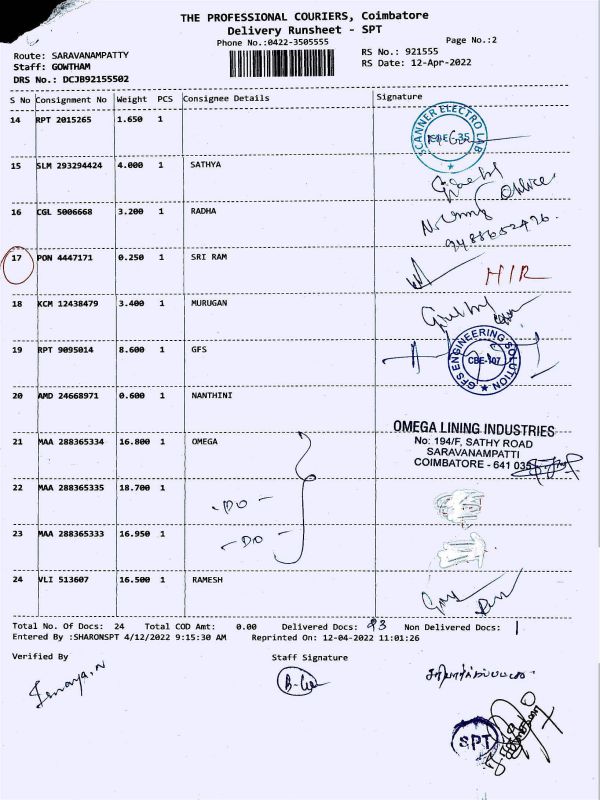 THE PROFESSIONAL COURIERS, Coimbatore
Delivery Runsheet - SPT
Phone No.:0422-3505555
Page No.:2
Route: SARAVANAMPATTY
RS No.: 921555
Staff: GOWTHAM
RS Date: 12-Apr-2022
DRS No.: DCJB92155502
S No Consignment No Weight PCS Consignee Details Signature
14 RPT 2015265 1.650 1
SCANNER ELECTRO LAB
CBE-35
15 SLM 293294424 4.000 1 SATHYA
Office
16 CGL 5006668 3.200 1 RADHA
9488652476
17 PON 4447171 0.250 1 SRI RAM
HIR
18 KCM 12438479 3.400 1 MURUGAN
19 RPT 9095014 8.600 1 GFS
GFS ENGINEERING SOLUTION
CBE-107
20 AMD 24668971 0.600 1 NANTHINI
OMEGA LINING INDUSTRIES
No: 194/F, SATHY ROAD
SARAVANAMPATTI
COIMBATORE - 641 035
21 MAA 288365334 16.800 1 OMEGA
22 MAA 288365335 18.700 1 - DO -
23 MAA 288365333 16.950 1 - DO -
24 VLI 513607 16.500 1 RAMESH
Total No. Of Docs: 24 Total COD Amt: 0.00 Delivered Docs: 23 Non Delivered Docs: 1
Entered By :SHARONSPT 4/12/2022 9:15:30 AM Reprinted On: 12-04-2022 11:01:26
Verified By Staff Signature
SPT